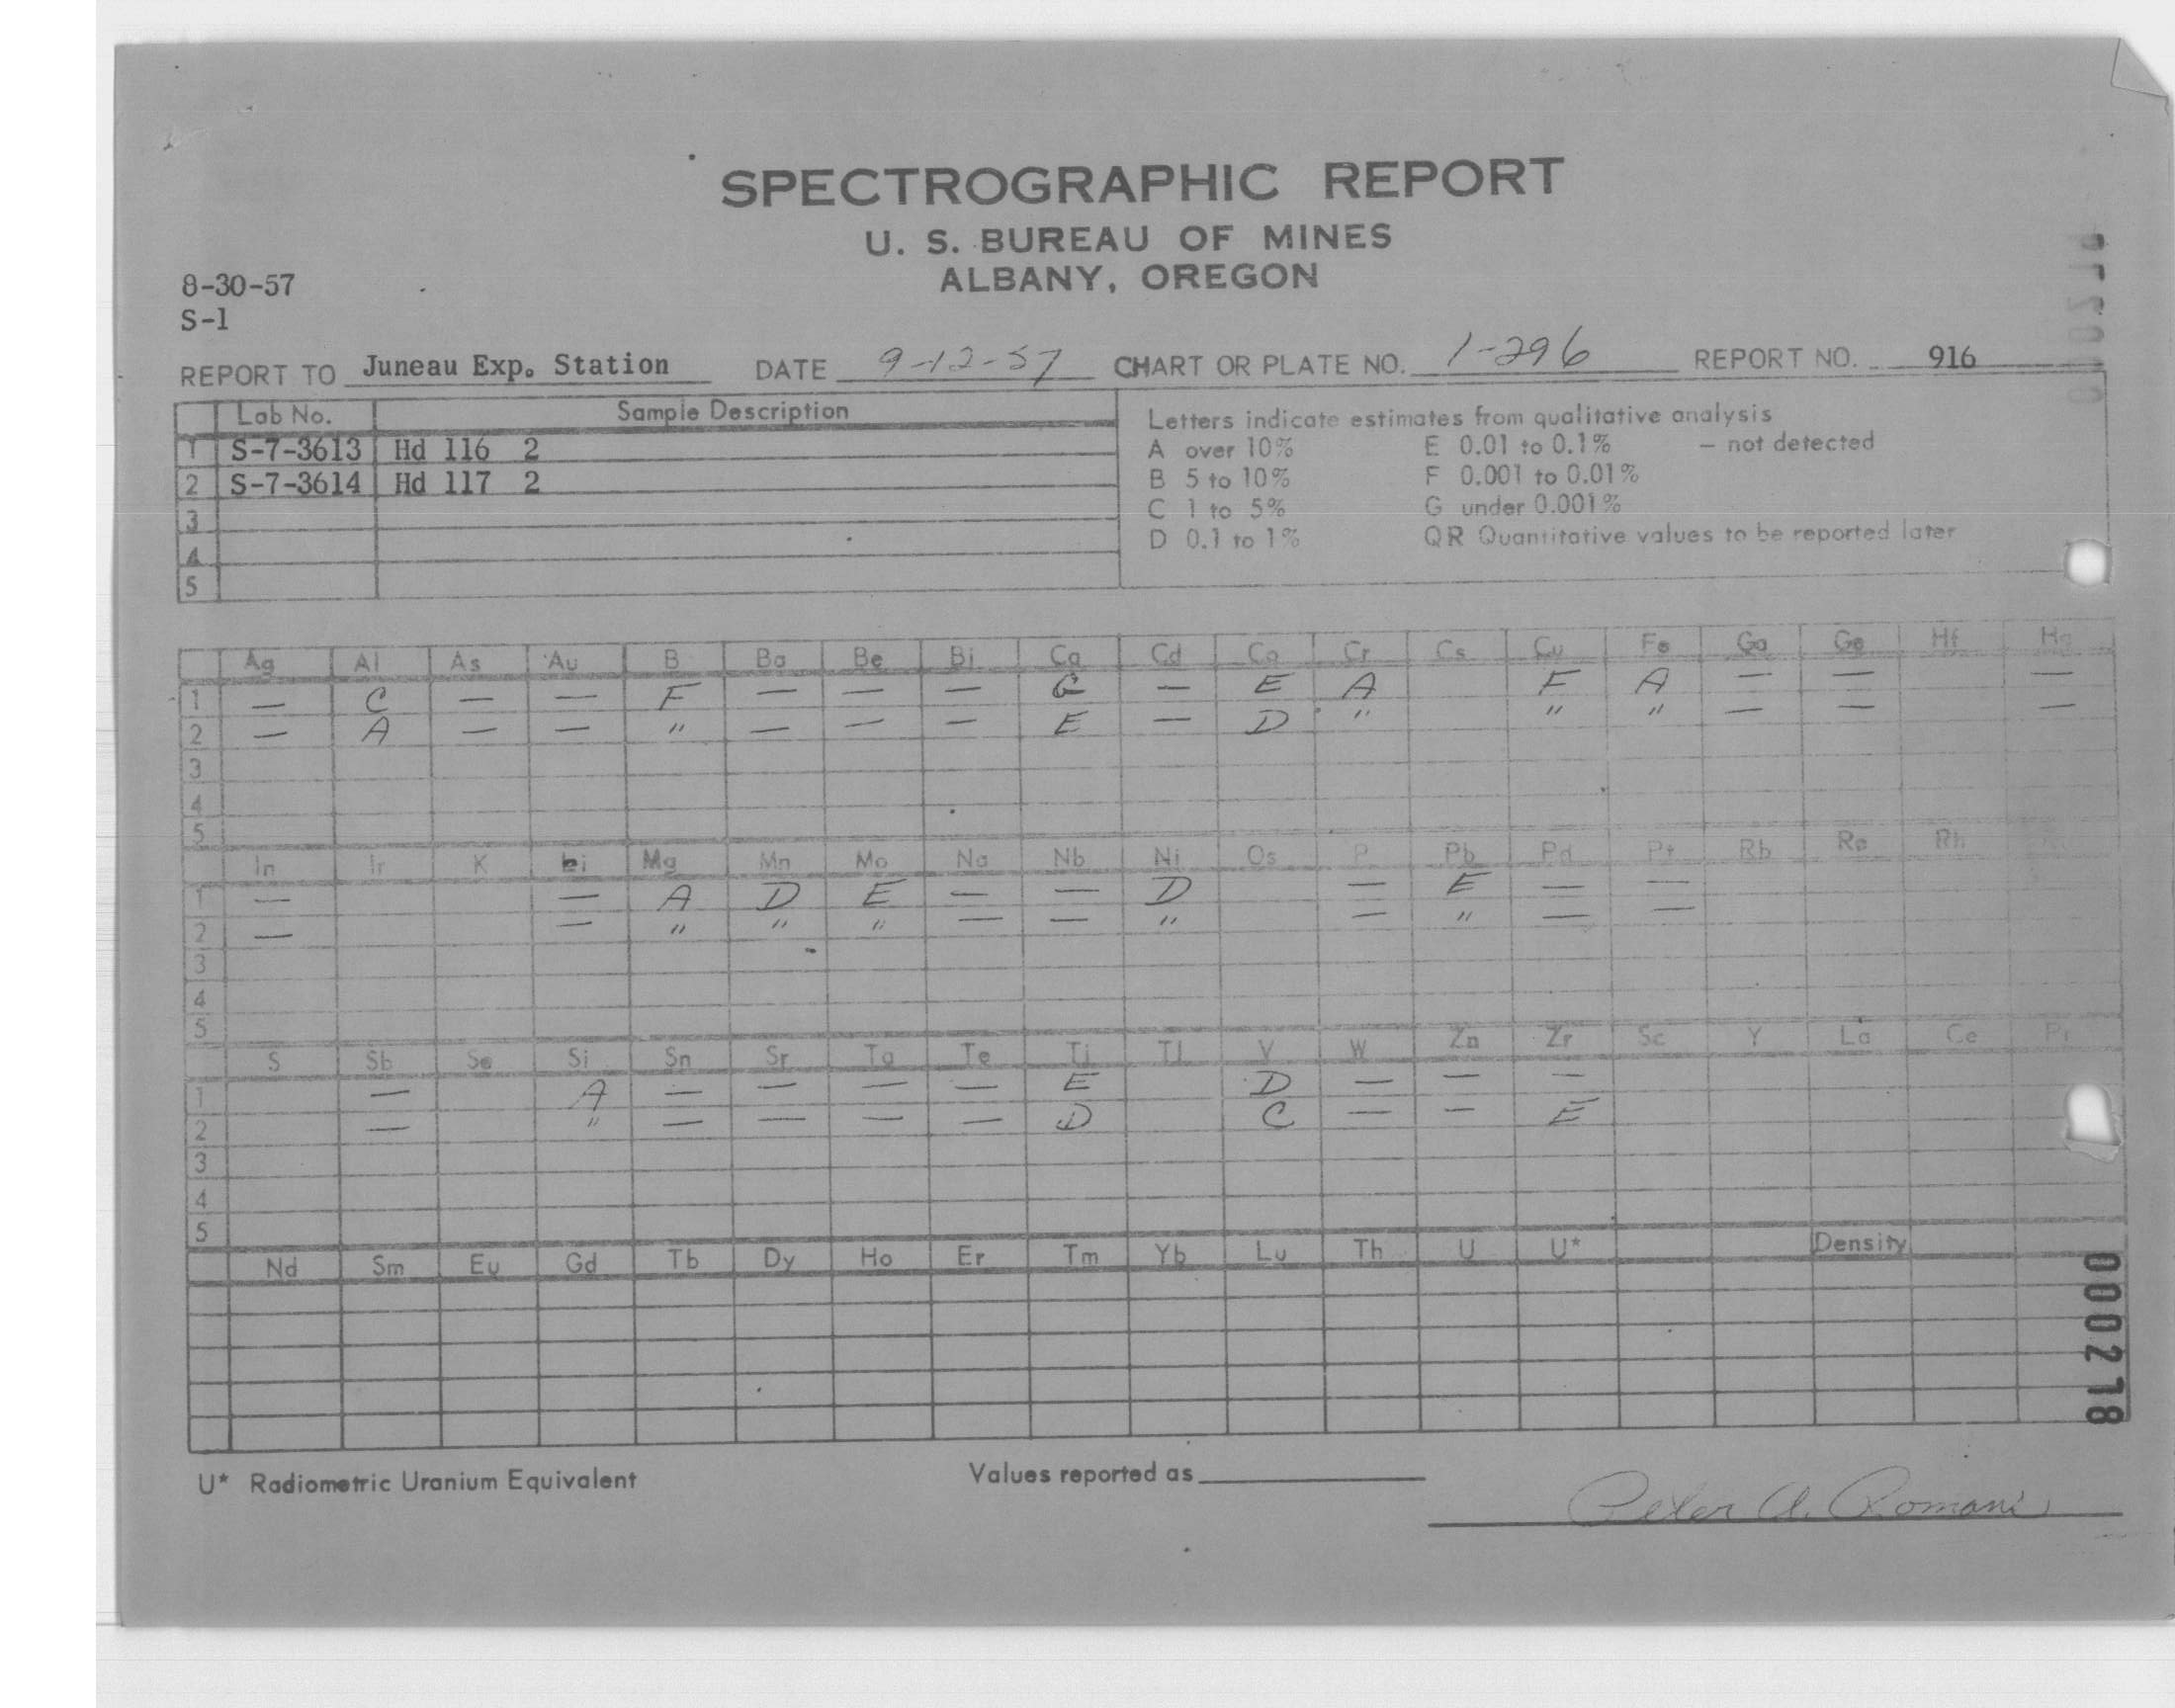 SPECTROGRAPHIC REPORT
U. S. BUREAU OF MINES
ALBANY, OREGON
8-30-57
S-1
REPORT TO Juneau Exp. Station DATE 9-12-57 CHART OR PLATE NO. 1-296 REPORT NO. 916
Lab No. Sample Description
1 S-7-3613 Hd 116 2
2 S-7-3614 Hd 117 2
3
4
5
Letters indicate estimates from qualitative analysis
A over 10% E 0.01 to 0.1% – not detected
B 5 to 10% F 0.001 to 0.01%
C 1 to 5% G under 0.001%
D 0.1 to 1% QR Quantitative values to be reported later
Ag Al As Au B Ba Be Bi Ca Cd Co Cr Cs Cu Fe Ga Ge Hf Hg
1 — C — — F — — — — E A F A — — —
2 — A — — " — — — E — D " " " — — —
3
4
5
In Ir K Li Mg Mn Mo Na Nb Ni Os P Pb Pd Pt Rb Re Rh
1 — — A D E — — D — E — —
2 — — " " " — — " — " — —
3
4
5
S Sb Se Si Sn Sr Ta Te Ti Tl V W Zn Zr Sc Y La Ce Pr
1 — A — — — — E D — — —
2 — " — — — — D C — — E
3
4
5
Nd Sm Eu Gd Tb Dy Ho Er Tm Yb Lu Th U U* Density
U* Radiometric Uranium Equivalent Values reported as
Peter A. Romans
000218